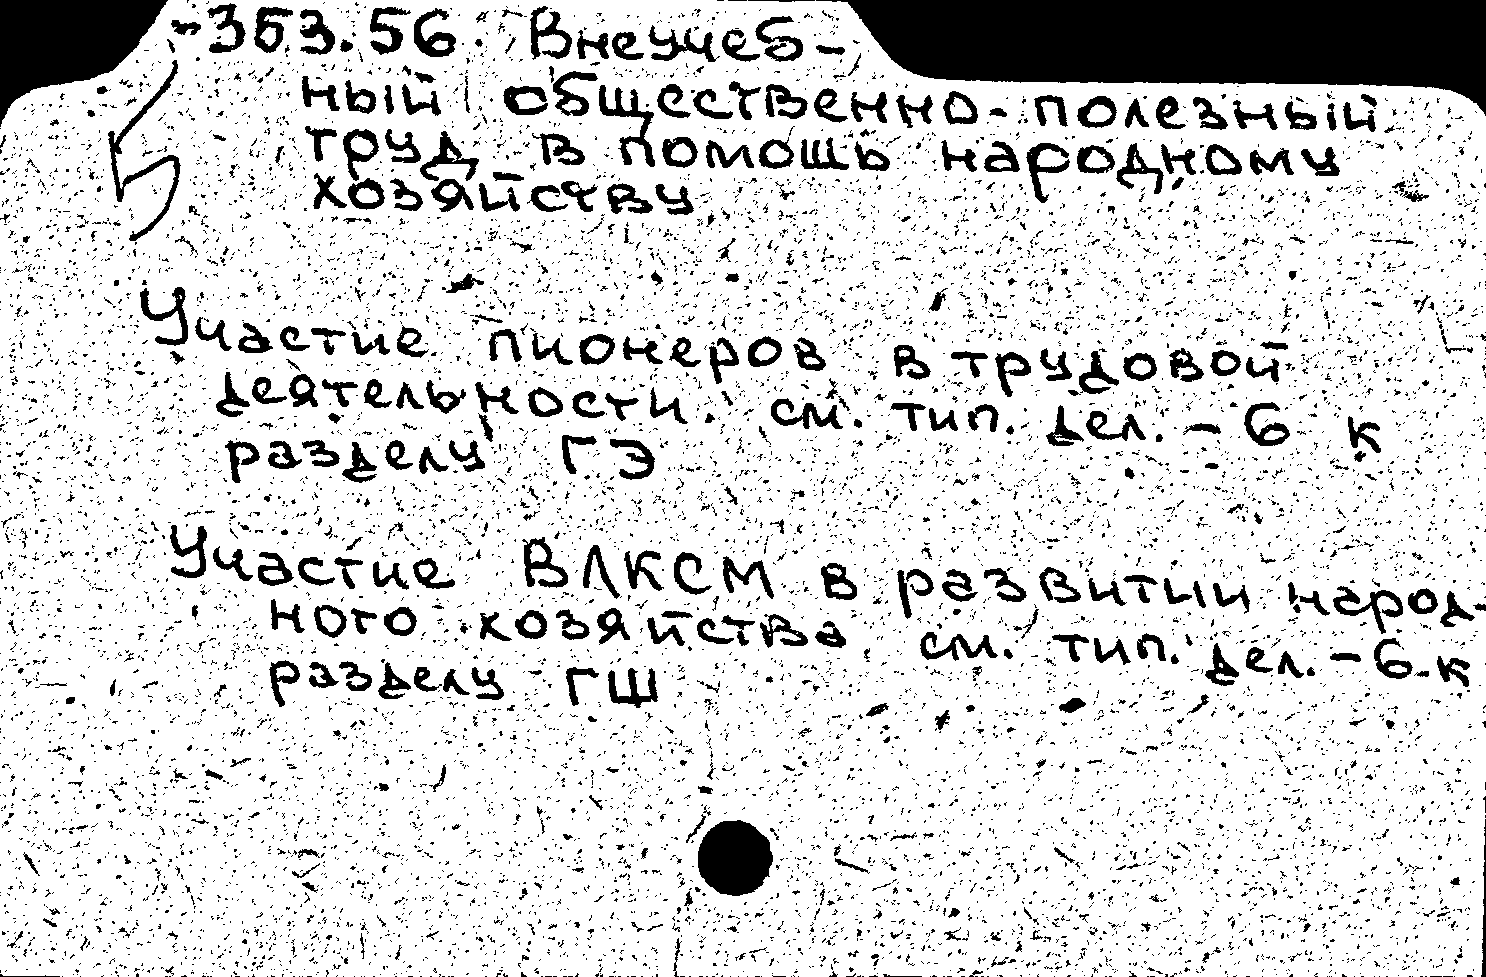 -353.56. Внеучеб-
ный общественно-полезный
труд в помощь народному
хозяйству
5
Участие пионеров в трудовой
деятельности. см. тип. дел. - 6 к
разделу ГЭ
Участие ВЛКСМ в развитии народ-
ного хозяйства см. тип. дел. - 6 к
разделу ГШ